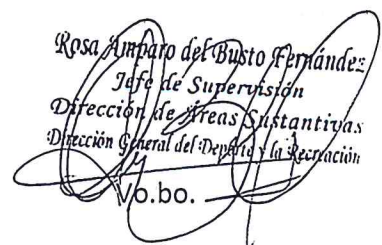 Rosa Amparo del Busto Fernández
Jefe de Supervisión
Dirección de Áreas Sustantivas
Dirección General del Deporte y la Recreación
Vo.bo.